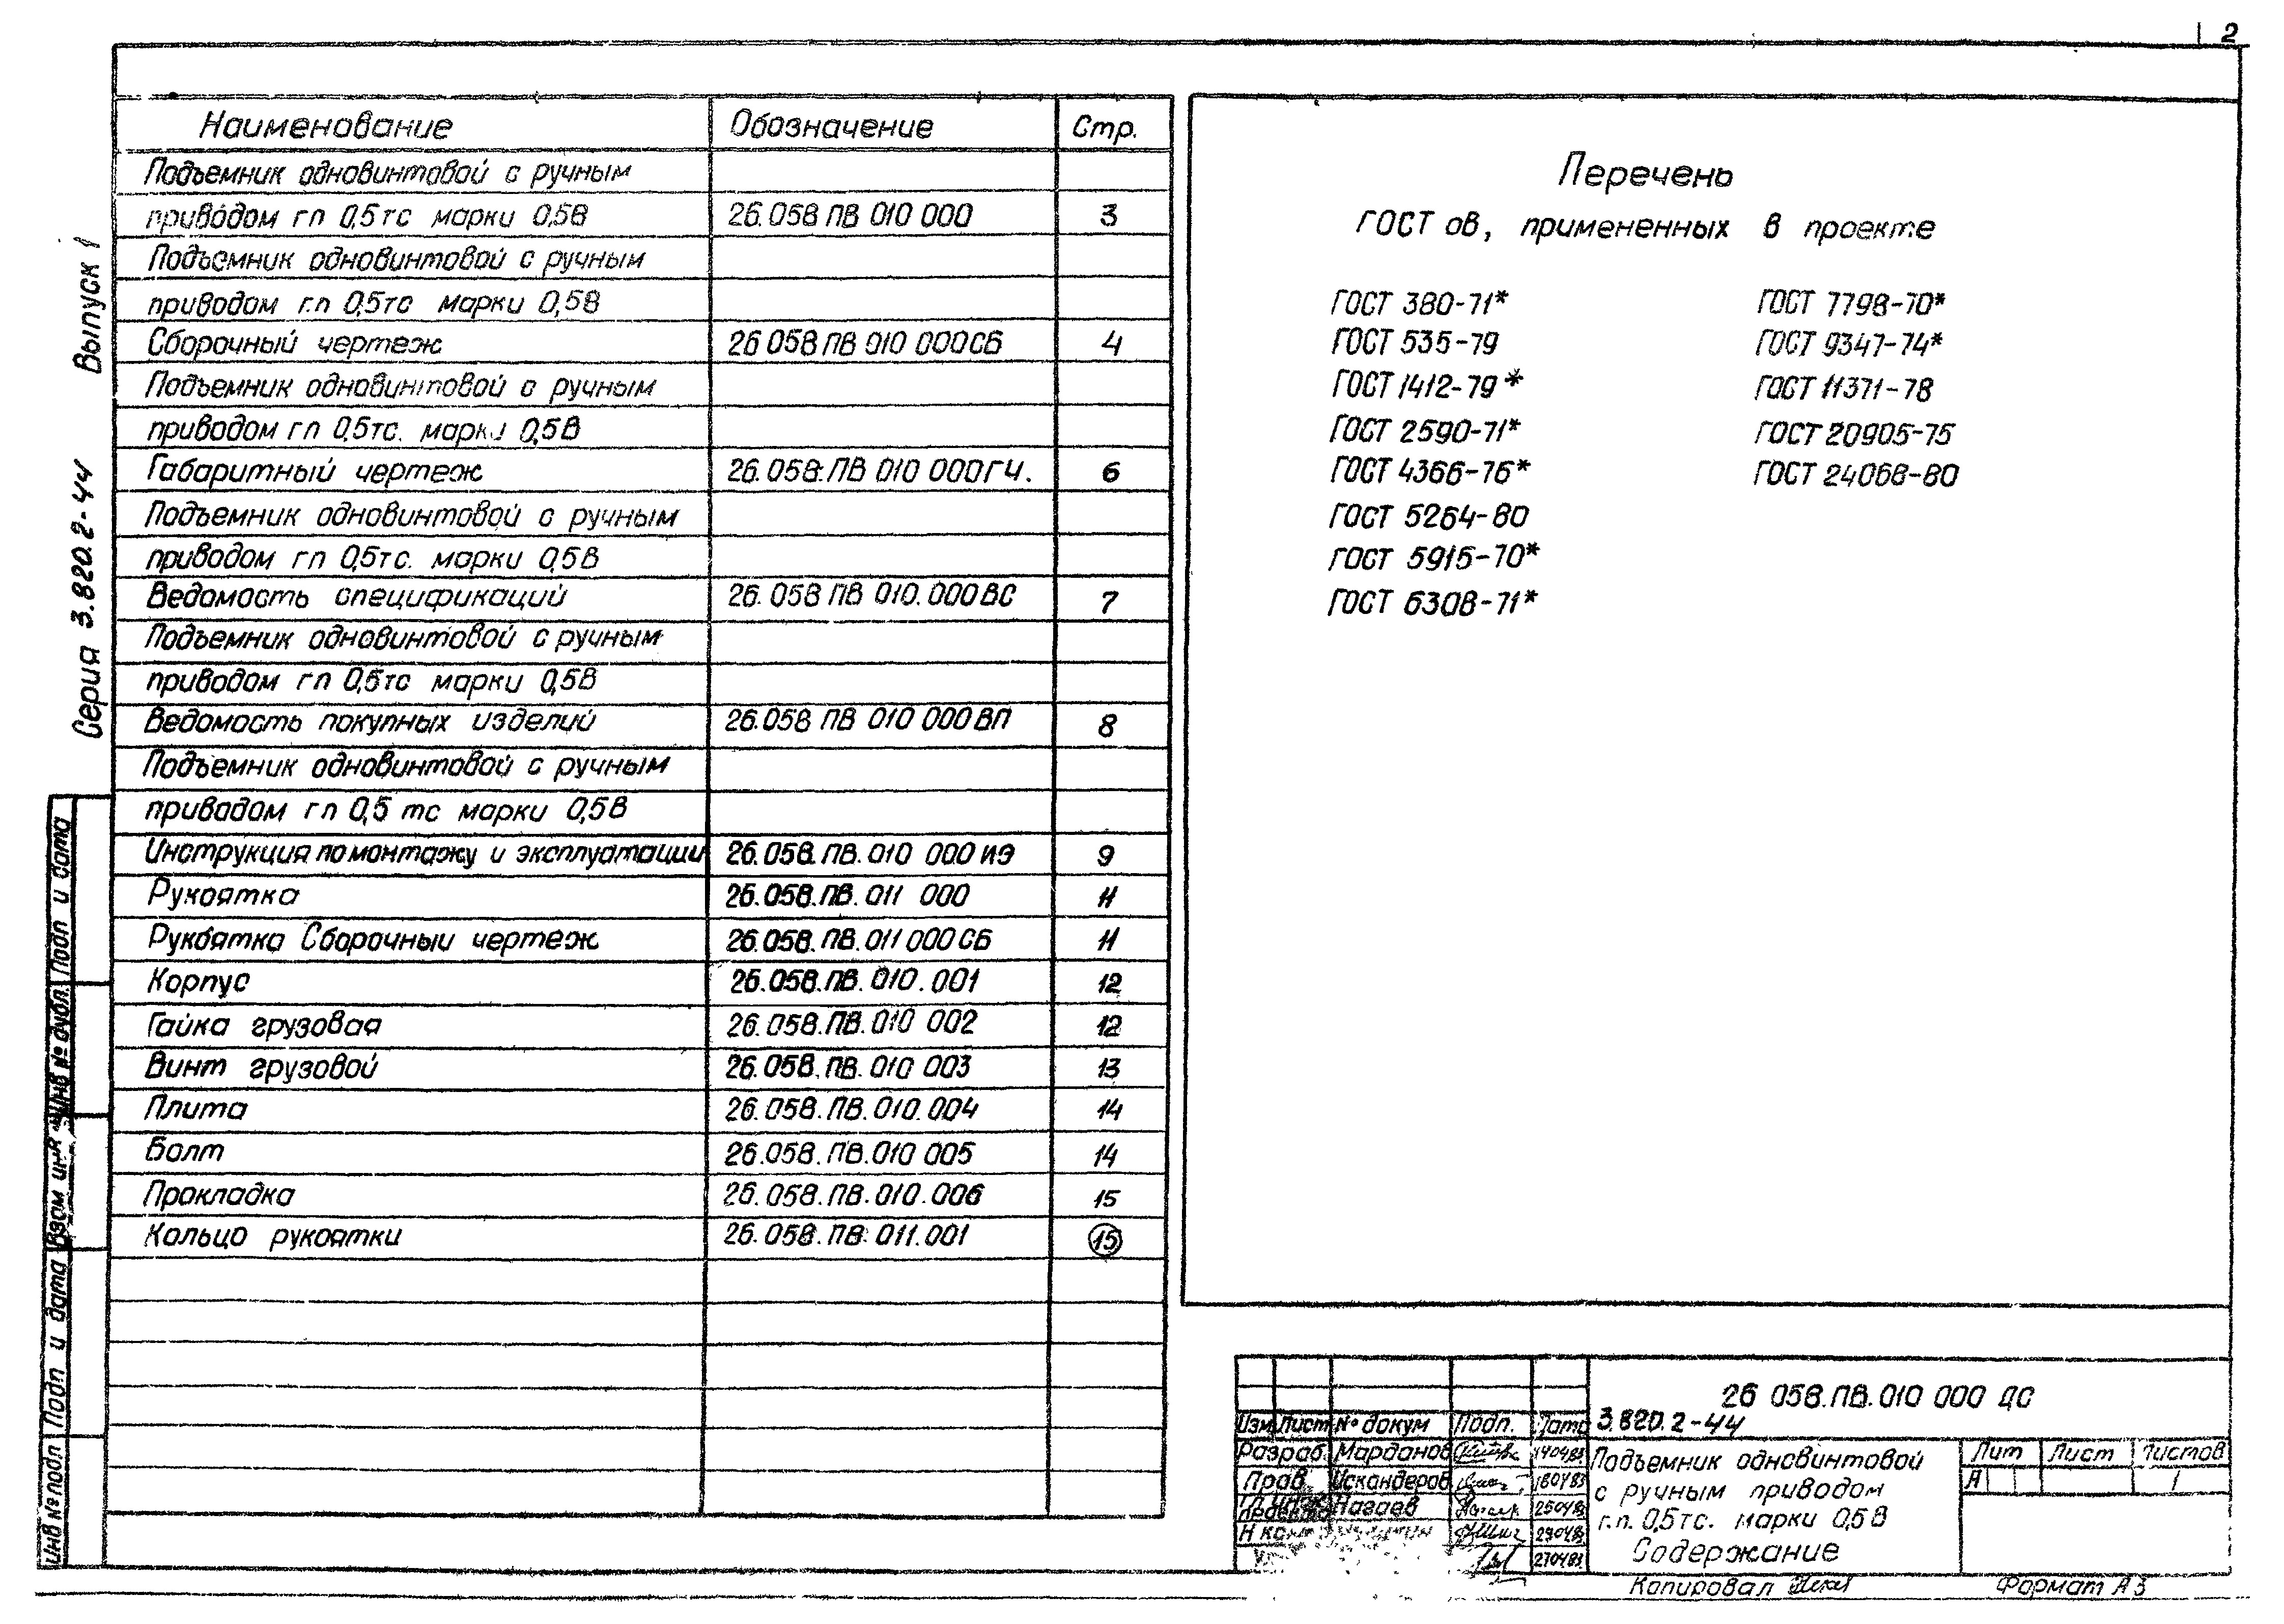 2
Серия 3.820.2-44 Выпуск 1
Наименование Обозначение Стр.
Подъемник одновинтовой с ручным
приводом гп 0,5тс марки 0,5В 26.058 ПВ 010 000 3
Подъемник одновинтовой с ручным
приводом г.п 0,5тс марки 0,5В
Сборочный чертеж 26 058 ПВ 010 000СБ 4
Подъемник одновинтовой с ручным
приводом гп 0,5тс. марки 0,5В
Габаритный чертеж 26.058.ПВ 010 000ГЧ. 6
Подъемник одновинтовой с ручным
приводом гп 0,5тс. марки 0,5В
Ведомость спецификаций 26.058 ПВ 010.000ВС 7
Подъемник одновинтовой с ручным
приводом гп 0,5тс марки 0,5В
Ведомость покупных изделий 26.058 ПВ 010 000ВП 8
Подъемник одновинтовой с ручным
приводом гп 0,5 тс марки 0,5В
Инструкция по монтажу и эксплуатации 26.058.ПВ.010 000ИЭ 9
Рукоятка 26.058.ПВ.011 000 11
Рукоятка Сборочный чертеж 26.058.ПВ.011 000СБ 11
Корпус 26.058.ПВ.010.001 12
Гайка грузовая 26.058.ПВ.010 002 12
Винт грузовой 26.058.ПВ.010 003 13
Плита 26.058.ПВ.010.004 14
Болт 26.058.ПВ.010 005 14
Прокладка 26.058.ПВ.010.006 15
Кольцо рукоятки 26.058.ПВ.011.001 15
Перечень
ГОСТ ов, примененных в проекте
ГОСТ 380-71* ГОСТ 7798-70*
ГОСТ 535-79 ГОСТ 9347-74*
ГОСТ 1412-79* ГОСТ 11371-78
ГОСТ 2590-71* ГОСТ 20905-75
ГОСТ 4366-76* ГОСТ 24068-80
ГОСТ 5264-80
ГОСТ 5915-70*
ГОСТ 6308-71*
26 058.ПВ.010 000 ДС
3.820.2-44
Изм Лист № докум Подп. Дата
Разраб. Марданов 140483
Пров Искандеров 180483
Гл.инж проекта Нагаев 250483
Н кон 290483
270483
Подъемник одновинтовой
с ручным приводом
г.п. 0,5тс. марки 0,5В
Содержание
Лит Лист Листов
А 1
Копировал Формат А3
Инв № подл Подп и дата Взам инв № Инв № дубл. Подп и дата